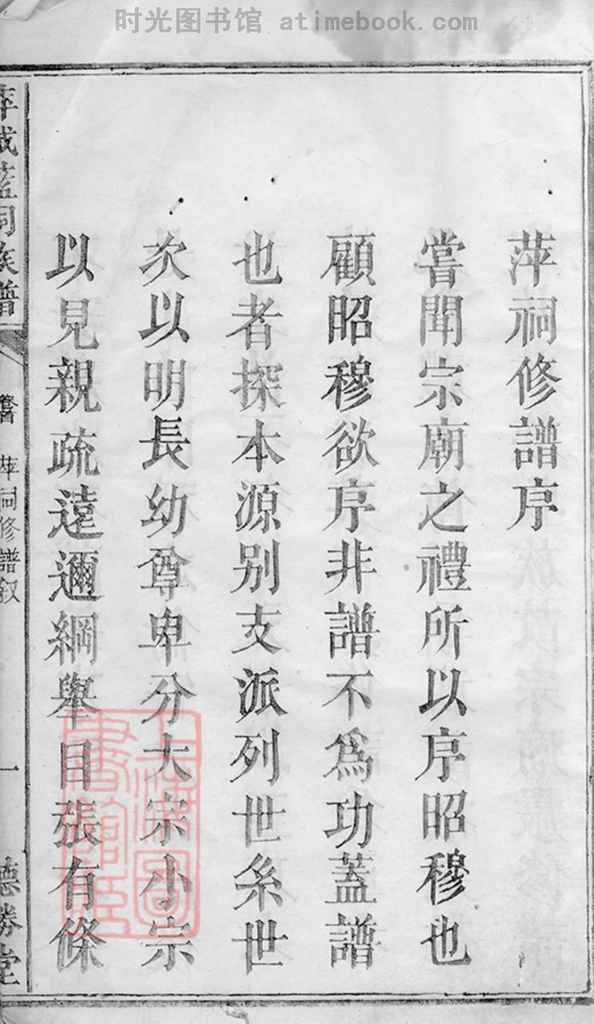 时光图书馆 atimebook.com
萍祠修譜序
嘗聞宗廟之禮所以序昭穆也
顧昭穆欲序非譜不爲功蓋譜
也者探本源别支派列世系世
次以明長幼尊卑分大宗小宗
以見親疏遠邇綱舉目張有條
族譜
卷首
萍祠修譜叙
一
德勝堂